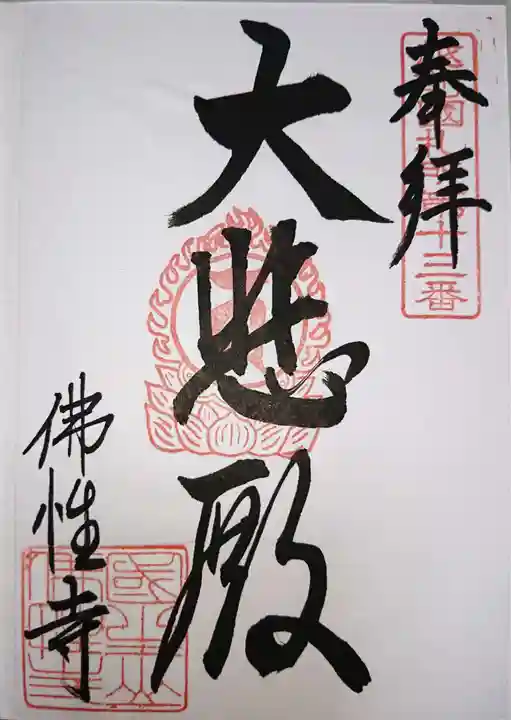 奉拝
十三番
大悲殿
佛性寺